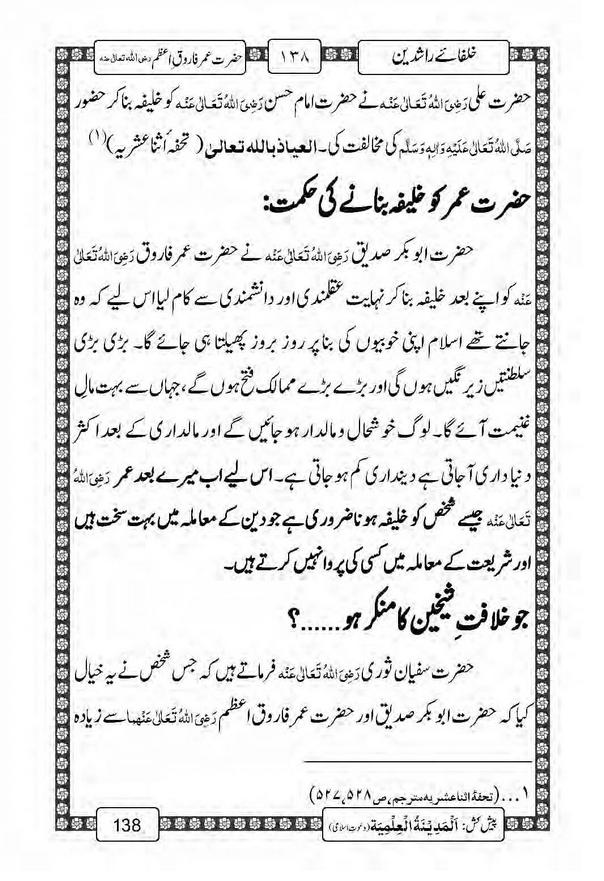 خلفائے راشدین ۱۳۸ حضرت عمر فاروقِ اعظم رضی اللہ تعالیٰ عنہ
حضرت علی رَضِیَ اللہُ تَعَالٰی عَنْہ نے حضرت امام حسن رَضِیَ اللہُ تَعَالٰی عَنْہ کو خلیفہ بنا کر حضور
صَلَّی اللہُ تَعَالٰی عَلَیْہِ وَاٰلِہٖ وَسَلَّم کی مخالفت کی۔ العیاذ باللہ تعالیٰ (تحفہ أثنا عشریہ)(۱)
حضرت عمر کو خلیفہ بنانے کی حکمت:
حضرت ابو بکر صدیق رَضِیَ اللہُ تَعَالٰی عَنْہ نے حضرت عمر فاروق رَضِیَ اللہُ تَعَالٰی
عَنْہ کو اپنے بعد خلیفہ بنا کر نہایت عقلمندی اور دانشمندی سے کام لیا اس لیے کہ وہ
جانتے تھے اسلام اپنی خوبیوں کی بنا پر روز بروز پھیلتا ہی جائے گا۔ بڑی بڑی
سلطنتیں زیر نگیں ہوں گی اور بڑے بڑے ممالک فتح ہوں گے، جہاں سے بہت مالِ
غنیمت آئے گا۔ لوگ خوشحال و مالدار ہو جائیں گے اور مالداری کے بعد اکثر
دنیا داری آ جاتی ہے دینداری کم ہو جاتی ہے۔ اس لیے اب میرے بعد عمر رَضِیَ اللہُ
تَعَالٰی عَنْہ جیسے شخص کو خلیفہ ہونا ضروری ہے جو دین کے معاملہ میں بہت سخت ہیں
اور شریعت کے معاملہ میں کسی کی پروا نہیں کرتے ہیں۔
جو خلافتِ شیخین کا منکر ہو......؟
حضرت سفیان ثوری رَضِیَ اللہُ تَعَالٰی عَنْہ فرماتے ہیں کہ جس شخص نے یہ خیال
کیا کہ حضرت ابو بکر صدیق اور حضرت عمر فاروق اعظم رَضِیَ اللہُ تَعَالٰی عَنْہُما سے زیادہ
۱...(تحفۂ اثنا عشریہ مترجم، ص ۵۲۷،۵۲۸)
پیش کش: اَلْمَدِیْنَۃُ الْعِلْمِیَۃ (دعوتِ اسلامی) 138